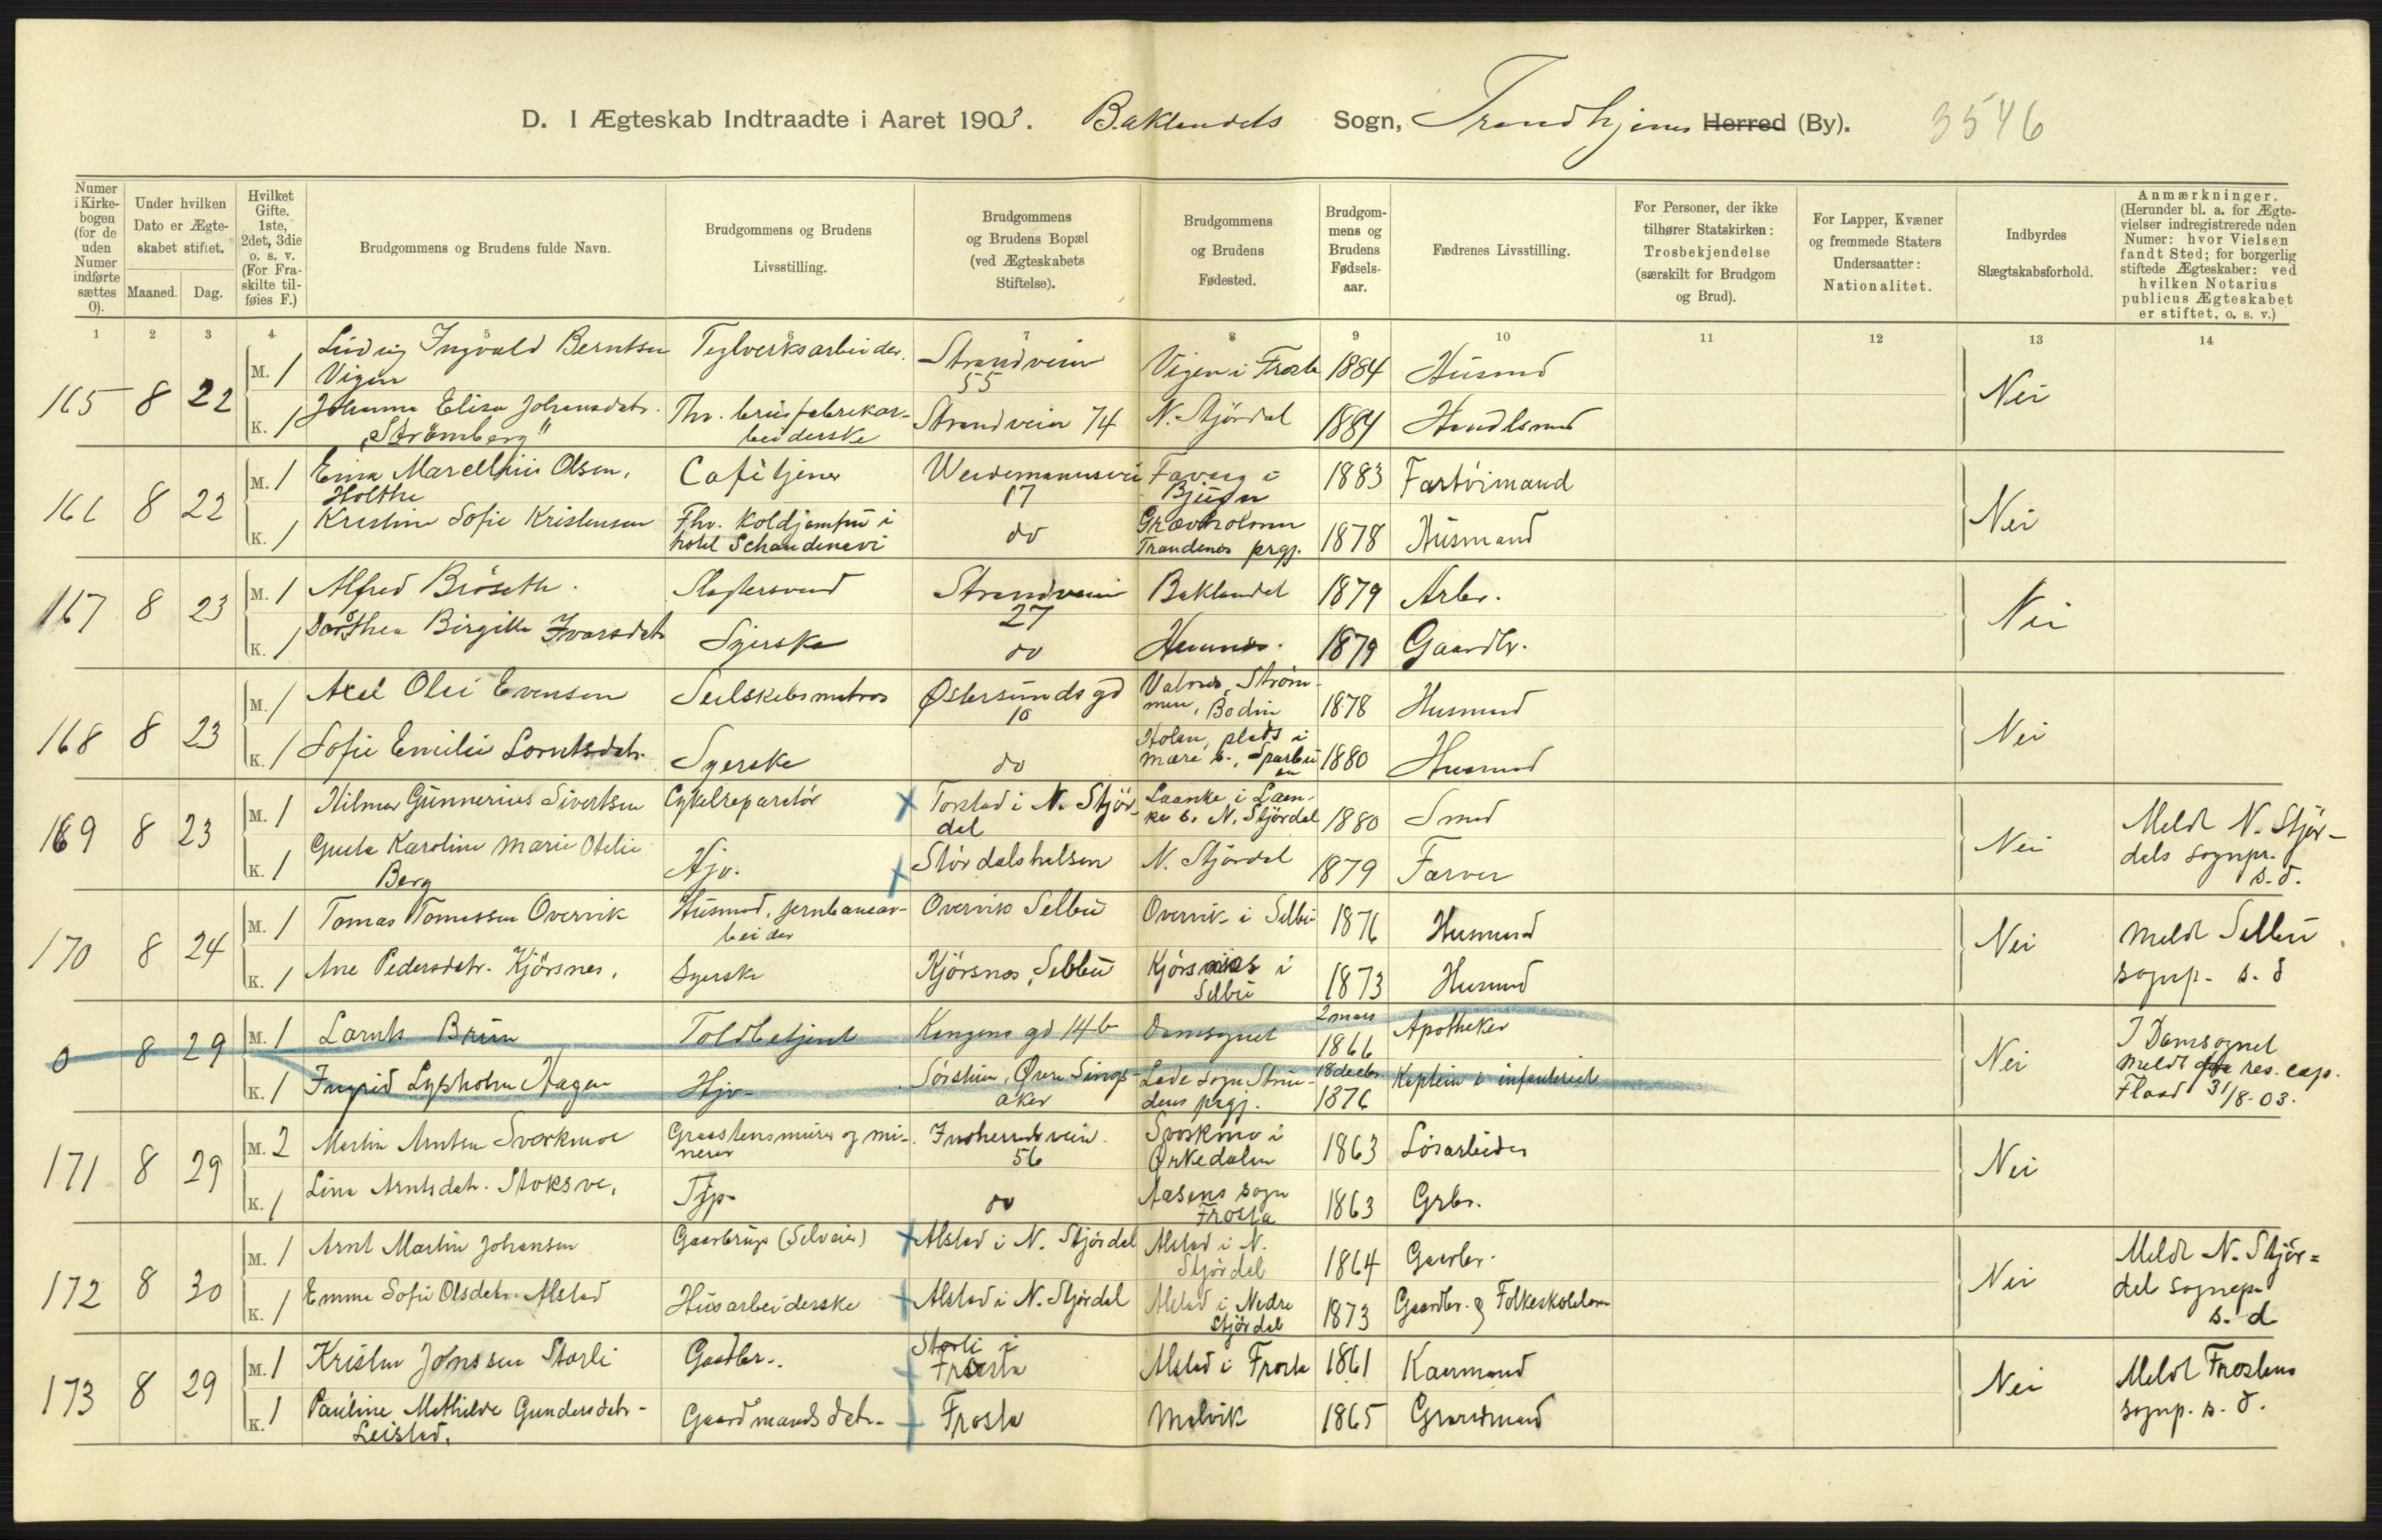 D. I Ægteskab Indtraadte i Aaret 1903. Baklandets Sogn, Trondhjems Herred (By). 3546
Numer i Kirkebogen (for de uden Numer indførte sættes 0).
Under hvilken Dato er Ægteskabet stiftet.
Maaned. Dag.
Hvilket Gifte. 1ste, 2det, 3die o. s. v. (For Fraskilte tilføies F.)
Brudgommens og Brudens fulde Navn.
Brudgommens og Brudens Livsstilling.
Brudgommens og Brudens Bopæl (ved Ægteskabets Stiftelse).
Brudgommens og Brudens Fødested.
Brudgommens og Brudens Fødselsaar.
Fædrenes Livsstilling.
For Personer, der ikke tilhører Statskirken: Trosbekjendelse (særskilt for Brudgom og Brud).
For Lapper, Kvæner og fremmede Staters Undersaatter: Nationalitet.
Indbyrdes Slægtskabsforhold.
Anmærkninger. (Herunder bl. a. for Ægtevielser indregistrerede uden Numer: hvor Vielsen fandt Sted; for borgerlig stiftede Ægteskaber: ved hvilken Notarius publicus Ægteskabet er stiftet, o. s. v.)
1 2 3 4 5 6 7 8 9 10 11 12 13 14
165 8 22 M. 1 Ludvig Ingvald Berntsen Vigen Teglverksarbeider. Strandveien 55 Vigen i Frosta 1884 Husmd Nei
K. 1 Johanna Elisa Johansdatr. "Strömberg" Fhv. brusfabrikarbeiderske Strandveien 74 N. Stjördal 1884 Handlsmd
166 8 22 M. 1 Marellius Olsen, Holthe Cafétjener 17 i Bjugn 1883 Nei
K. 1 Kristine Sofie Kristensen Fhv. Koldjomfru i hotel Schandinavi do Trondenes prgj. 1878 Husmand
167 8 23 M. 1 Alfred Bröseth. Slagtersvend Strandveien 27 Baklandet 1879 Arbr. Nei
K. 1 Dorothea Birgitte Ivarsdatr Syerske do Hemnes. 1879 Gaardbr.
168 8 23 M. 1 Axel Olei Evensen Selskabsmatros Østersundsgd 10 Strömmen, Bodin 1878 Husmnd Nei
K. 1 Sofie Emilie Lorntsdatr. Syerske do Holan, plads i Mære s., Sparbuen 1880 Husmnd
169 8 23 M. 1 Hilmar Gunnerius Sivertsen Cykelreparatör Torstad i N. Stjördal Laanke i Laanke s. N. Stjördal 1880 Smed Nei Meldt N. Stjördals sognpr. s. d.
K. 1 Gusta Karoline Marie Otelie Berg Hjv. Stördalshalsen N. Stjördal 1879 Farver
170 8 24 M. 1 Tomas Tomassen Overvik Husmd, jernbanearbeider Overvik Selbu Overvik i Selbu 1876 Husmand Nei Meldt Selbu sognp. s. d
K. 1 Ane Pedersdatr. Kjösnes, Syerske Kjösnes, Selbu Kjösnes i Selbu 1873 Husmd
0 8 29 M. 1 Lornts Brun Toldbetjent Kongens gd 14b Domsognet 2 mars 1866 Apotheker Nei I Domsognet meldt res. cap. Flood 31/8-03.
K. 1 Ingrid Lysholm Hagen Hjv. Øvre Singsaker Lade sogn Strindens prgj. 18 decbr 1876 Kaptein i infanteriet
171 8 29 M. 2 Martin Arntsen Svorkmoe Graastensmurer og minerer Inherredsveien 56 Svorkmo i Orkedalen 1863 Lösarbeider Nei
K. 1 Lina Arntsdatr. Stoksve, Tjp. do Aasens sogn Frosta 1863 Grbr.
172 8 30 M. 1 Arnt Martin Johansen Gaarbruger (Selveier) Alstad i N. Stjördal Alstad i N. Stjördal 1864 Gaarbr. Nei Meldt N. Stjördal sognepr s. d
K. 1 Emma Sofie Olsdatr. Alstad Husarbeiderske Alstad i N. Stjördal Alstad i Nedre Stjördal 1873 Gaardbr. og Folkeskolelærer
173 8 29 M. 1 Kristen Jonssen Storli Gaadbr.. Storli i Frosta Alstad i Frosta 1861 Kaarmand Nei Meldt Frostens sognp. s. d.
K. 1 Pauline Mathilde Gundersdatr. Leistad. Gaardmandsdatr. Frosta Malvik 1865 Graardmand